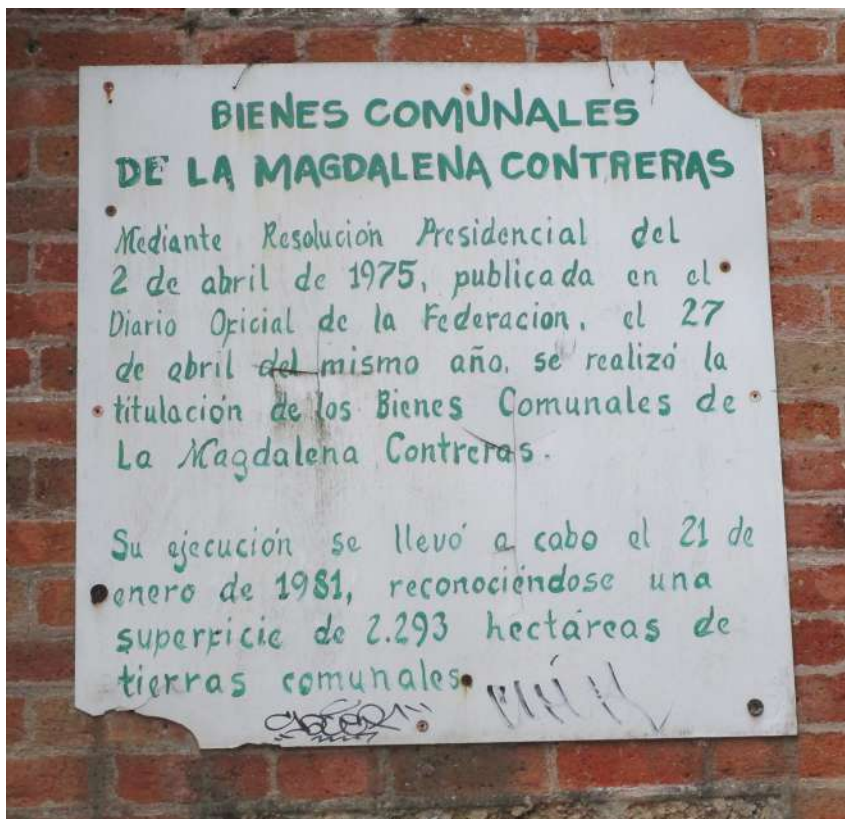 BIENES COMUNALES
DE LA MAGDALENA CONTRERAS
Mediante Resolución Presidencial del
2 de abril de 1975, publicada en el
Diario Oficial de la Federacion, el 27
de abril del mismo año, se realizó la
titulación de los Bienes Comunales de
La Magdalena Contreras.
Su ejecución se llevó a cabo el 21 de
enero de 1981, reconociéndose una
superficie de 2.293 hectáreas de
tierras comunales.